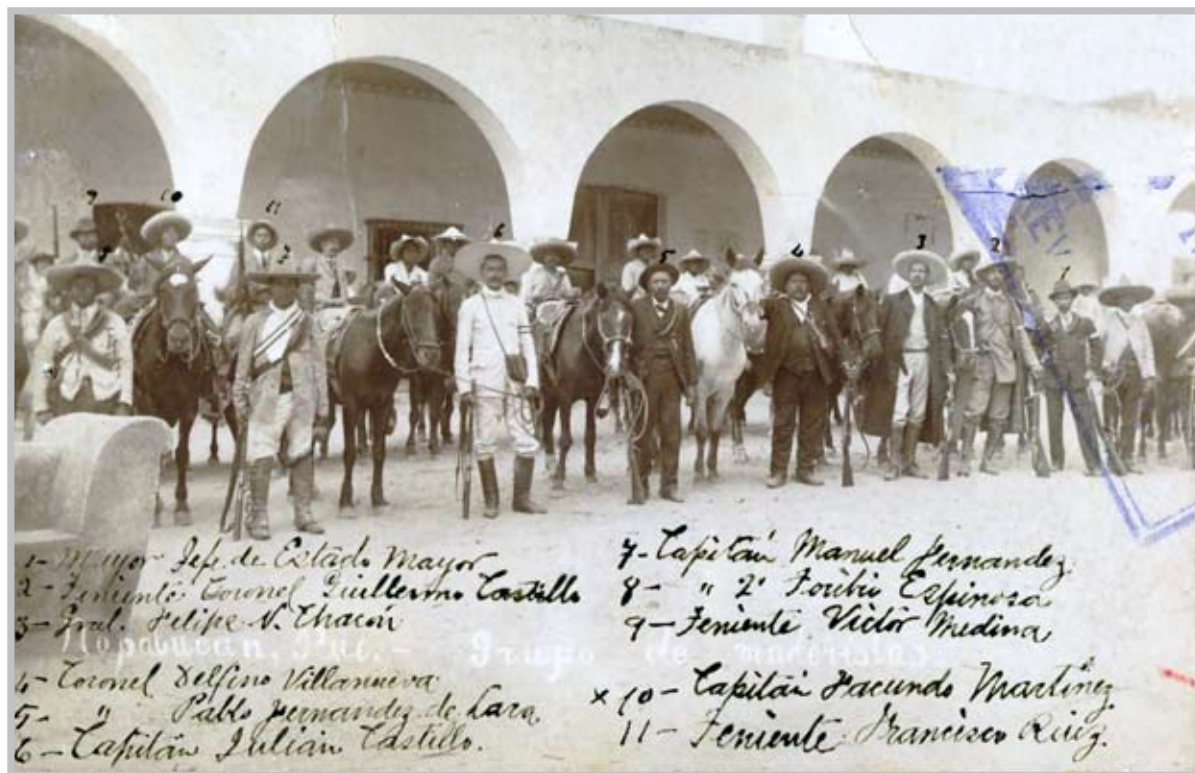 1- Mayor Jefe de Estado Mayor
2- Teniente Coronel Guillermo Castillo
3- Gral. Felipe N. Chacón
Nopalucan, Pue. - Grupo de maderistas
4- Coronel Delfino Villanueva
5- " Pablo Fernandez de Lara
6- Capitán Julián Castillo.
7- Capitán Manuel Fernandez
8- " 2º Toribio Espinosa
9- Teniente Victor Medina
x 10- Capitán Facundo Martínez
11- Teniente Francisco Ruiz.
9
10
11
7
6
5
4
3
2
1